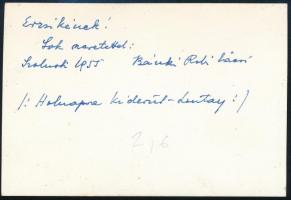 Erzsikének!
Sok szeretettel:
Szolnok 1955 Bánki Robi bácsi
/: Holnapra kiderül - Lontay :/
2,6